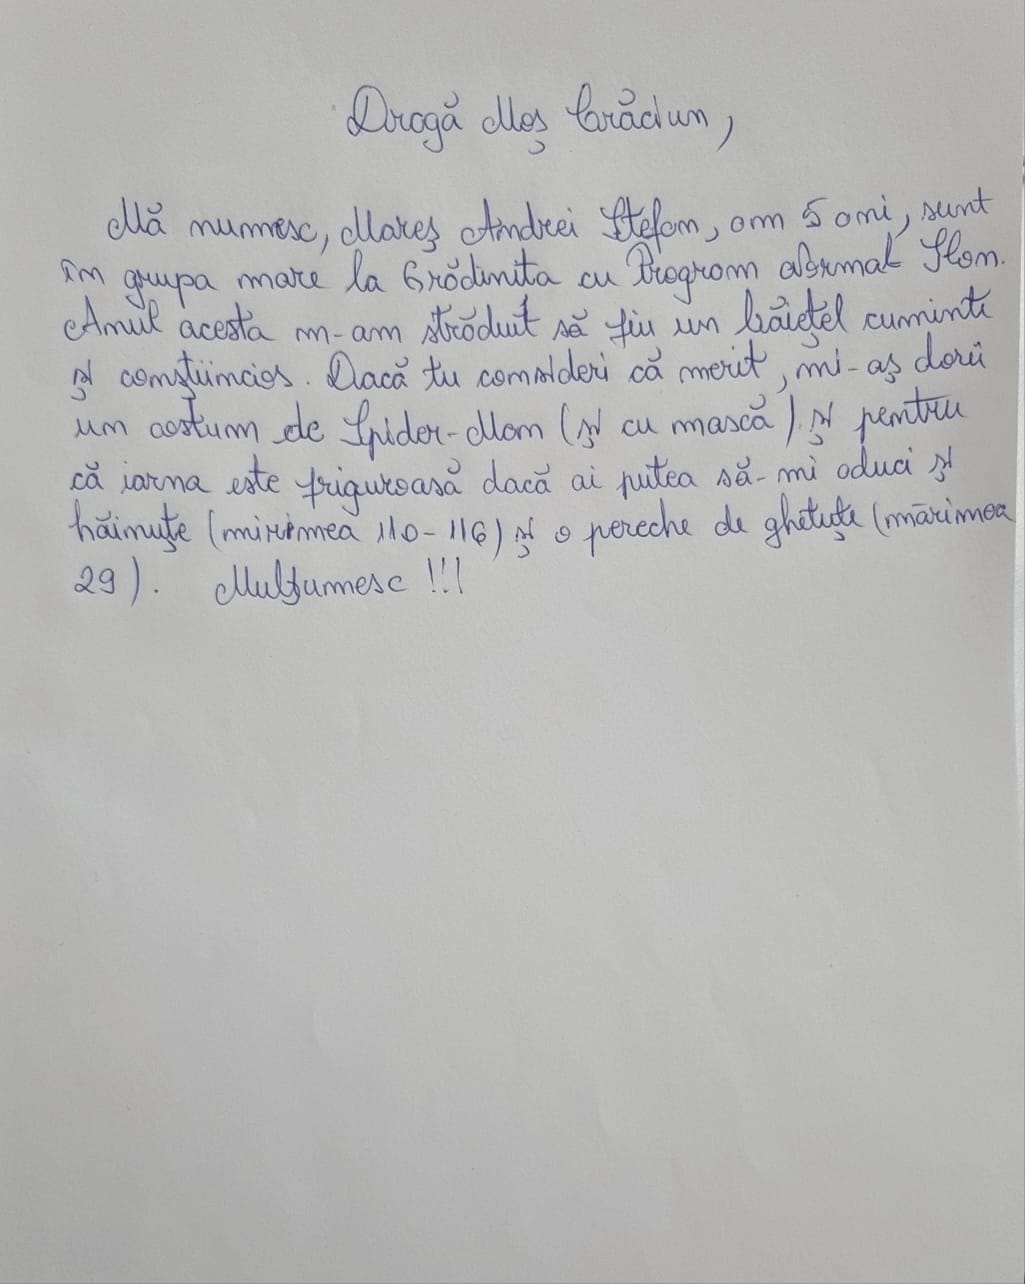 Dragă Moș Crăciun,
Mă numesc, Mareș Andrei Ștefan, am 5 ani, sunt
în grupa mare la Grădinita cu Program Normal Slon.
Anul acesta m-am străduit să fiu un băiețel cuminte
și conștiincios. Dacă tu consideri că merit, mi-aș dori
un costum de Spider-Man (și cu mască). și pentru
că iarna este friguroasă dacă ai putea să-mi aduci și
hăinuțe (mirimea 110-116) și o pereche de ghetuțe (mărimea
29). Mulțumesc !!!